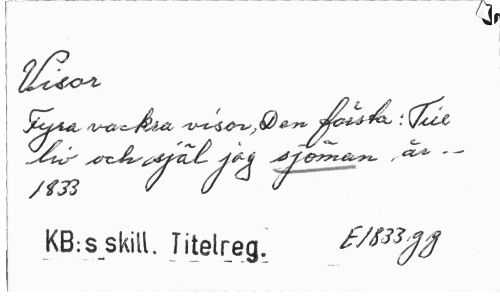 Visor
Fyra vackra visor, Den första: Till
liv och själ jag sjöman är --
1833
KB:s skill. Titelreg.
E1833gg